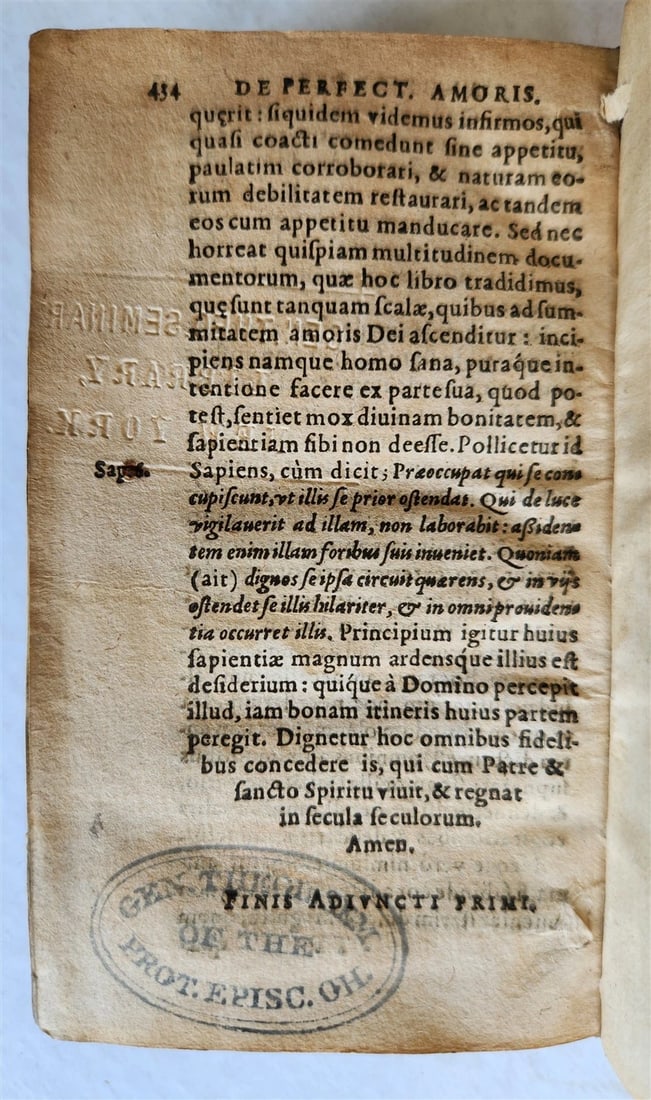 434 DE PERFECT. AMORIS.
quęrit : ſiquidem videmus infirmos, qui
quaſi coacti comedunt ſine appetitu,
paulatim corroborari, & naturam eo-
rum debilitatem reſtaurari, ac tandem
eos cum appetitu manducare. Sed nec
horreat quiſpiam multitudinem docu-
mentorum, quæ hoc libro tradidimus,
quę ſunt tanquam ſcalæ, quibus ad ſum-
mitatem amoris Dei aſcenditur : inci-
piens namque homo ſana, puraq́ue in-
tentione facere ex parte ſua, quod po-
teſt, ſentiet mox diuinam bonitatem, &
ſapientiam ſibi non deeſſe. Pollicetur id
Sapiens, cùm dicit; Præoccupat qui ſe con-
cupiſcunt, vt illis ſe prior oſtendat. Qui de luce
vigilauerit ad illam, non laborabit: aßiden-
tem enim illam foribus ſuis inueniet. Quoniam
(ait) dignos ſe ipſa circuit quærens, & in vijs
oſtendet ſe illis hilariter, & in omni prouiden-
tia occurret illis. Principium igitur huius
ſapientiæ magnum ardensque illius eſt
deſiderium : quiq́ue à Domino percepit
illud, iam bonam itineris huius partem
peregit. Dignetur hoc omnibus fideli-
bus concedere is, qui cum Patre &
ſancto Spiritu viuit, & regnat
in ſecula ſeculorum.
Amen.
FINIS ADIVNCTI PRIMI.
GEN. THEOL. SEM.
OF THE
PROT. EPISC. CH.
SEMINARY
LIBRARY,
YORK.